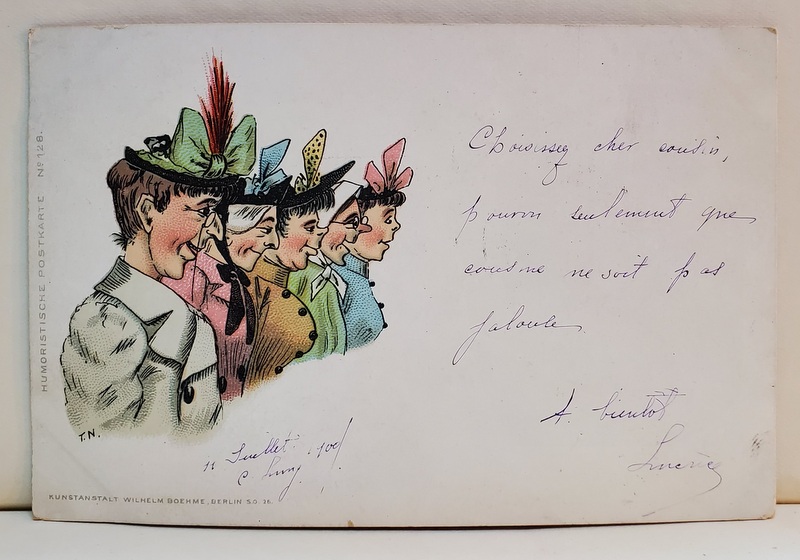 HUMORISTISCHE POSTKARTE Nº 128.
Choisissez cher cousin,
pourvu seulement que
cousine ne soit pas
jalouse
A bientôt
11 Juillet
T.N.
KUNSTANSTALT WILHELM BOEHME, BERLIN S.O. 16.